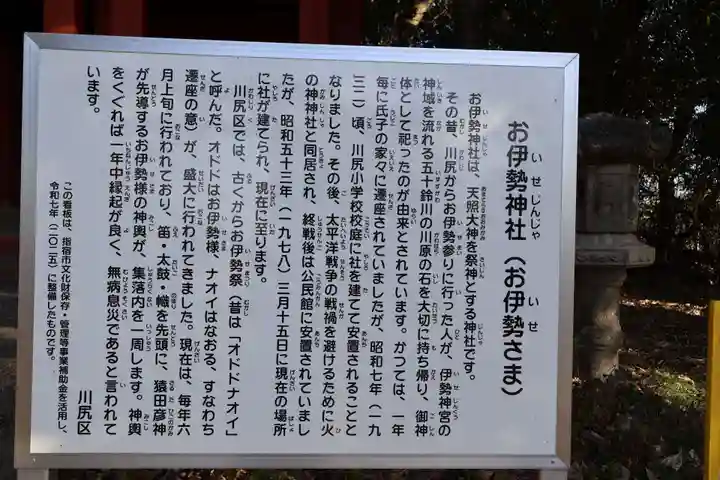 お伊勢神社（お伊勢さま）
お伊勢神社は、天照大神を祭神とする神社です。
その昔、川尻からお伊勢参りに行った人が、伊勢神宮の
神域を流れる五十鈴川の川原の石を大切に持ち帰り、御神
体として祀ったのが由来とされています。かつては、一年
毎に氏子の家々に遷座されていましたが、昭和七年（一九
三二）頃、川尻小学校校庭に社を建てて安置されることと
なりました。その後、太平洋戦争の戦禍を避けるために火
の神神社と同居され、終戦後は公民館に安置されていまし
たが、昭和五十三年（一九七八）三月十五日に現在の場所
に社が建てられ、現在に至ります。
川尻区では、古くからお伊勢祭（昔は「オドドナオイ」
と呼んだ。オドドはお伊勢様、ナオイはなおる、すなわち
遷座の意）が、盛大に行われてきました。現在は、毎年六
月上旬に行われており、笛・太鼓・幟を先頭に、猿田彦神
が先導するお伊勢様の神輿が、集落内を一周します。神輿
をくぐれば一年中縁起が良く、無病息災であると言われて
います。
川尻区
この看板は、指宿市文化財保存・管理等事業補助金を活用し、
令和七年（二〇二五）に整備したものです。